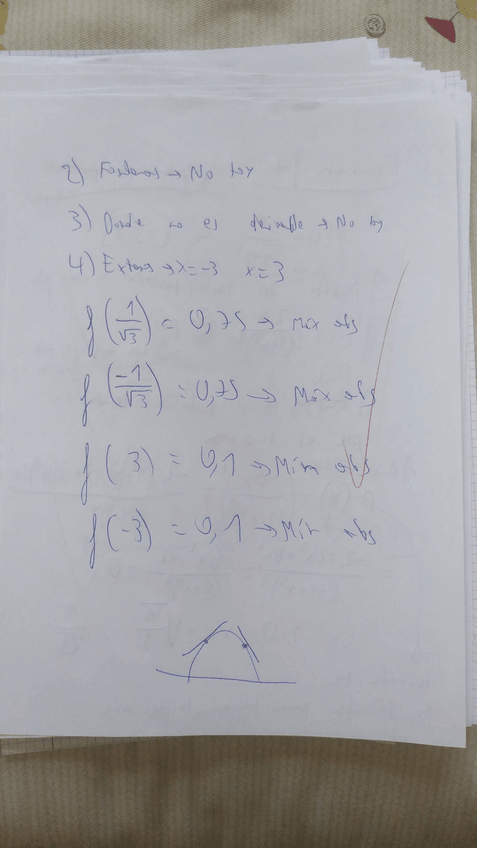 2) Fronteras → No hay
3) Donde no es derivable → No hay
4) Extremos → x = -3 x = 3
f(1/√3) = 0,75 → Máx abs
f(-1/√3) = 0,75 → Máx abs
f(3) = 0,1 → Mín abs
f(-3) = 0,1 → Mín abs